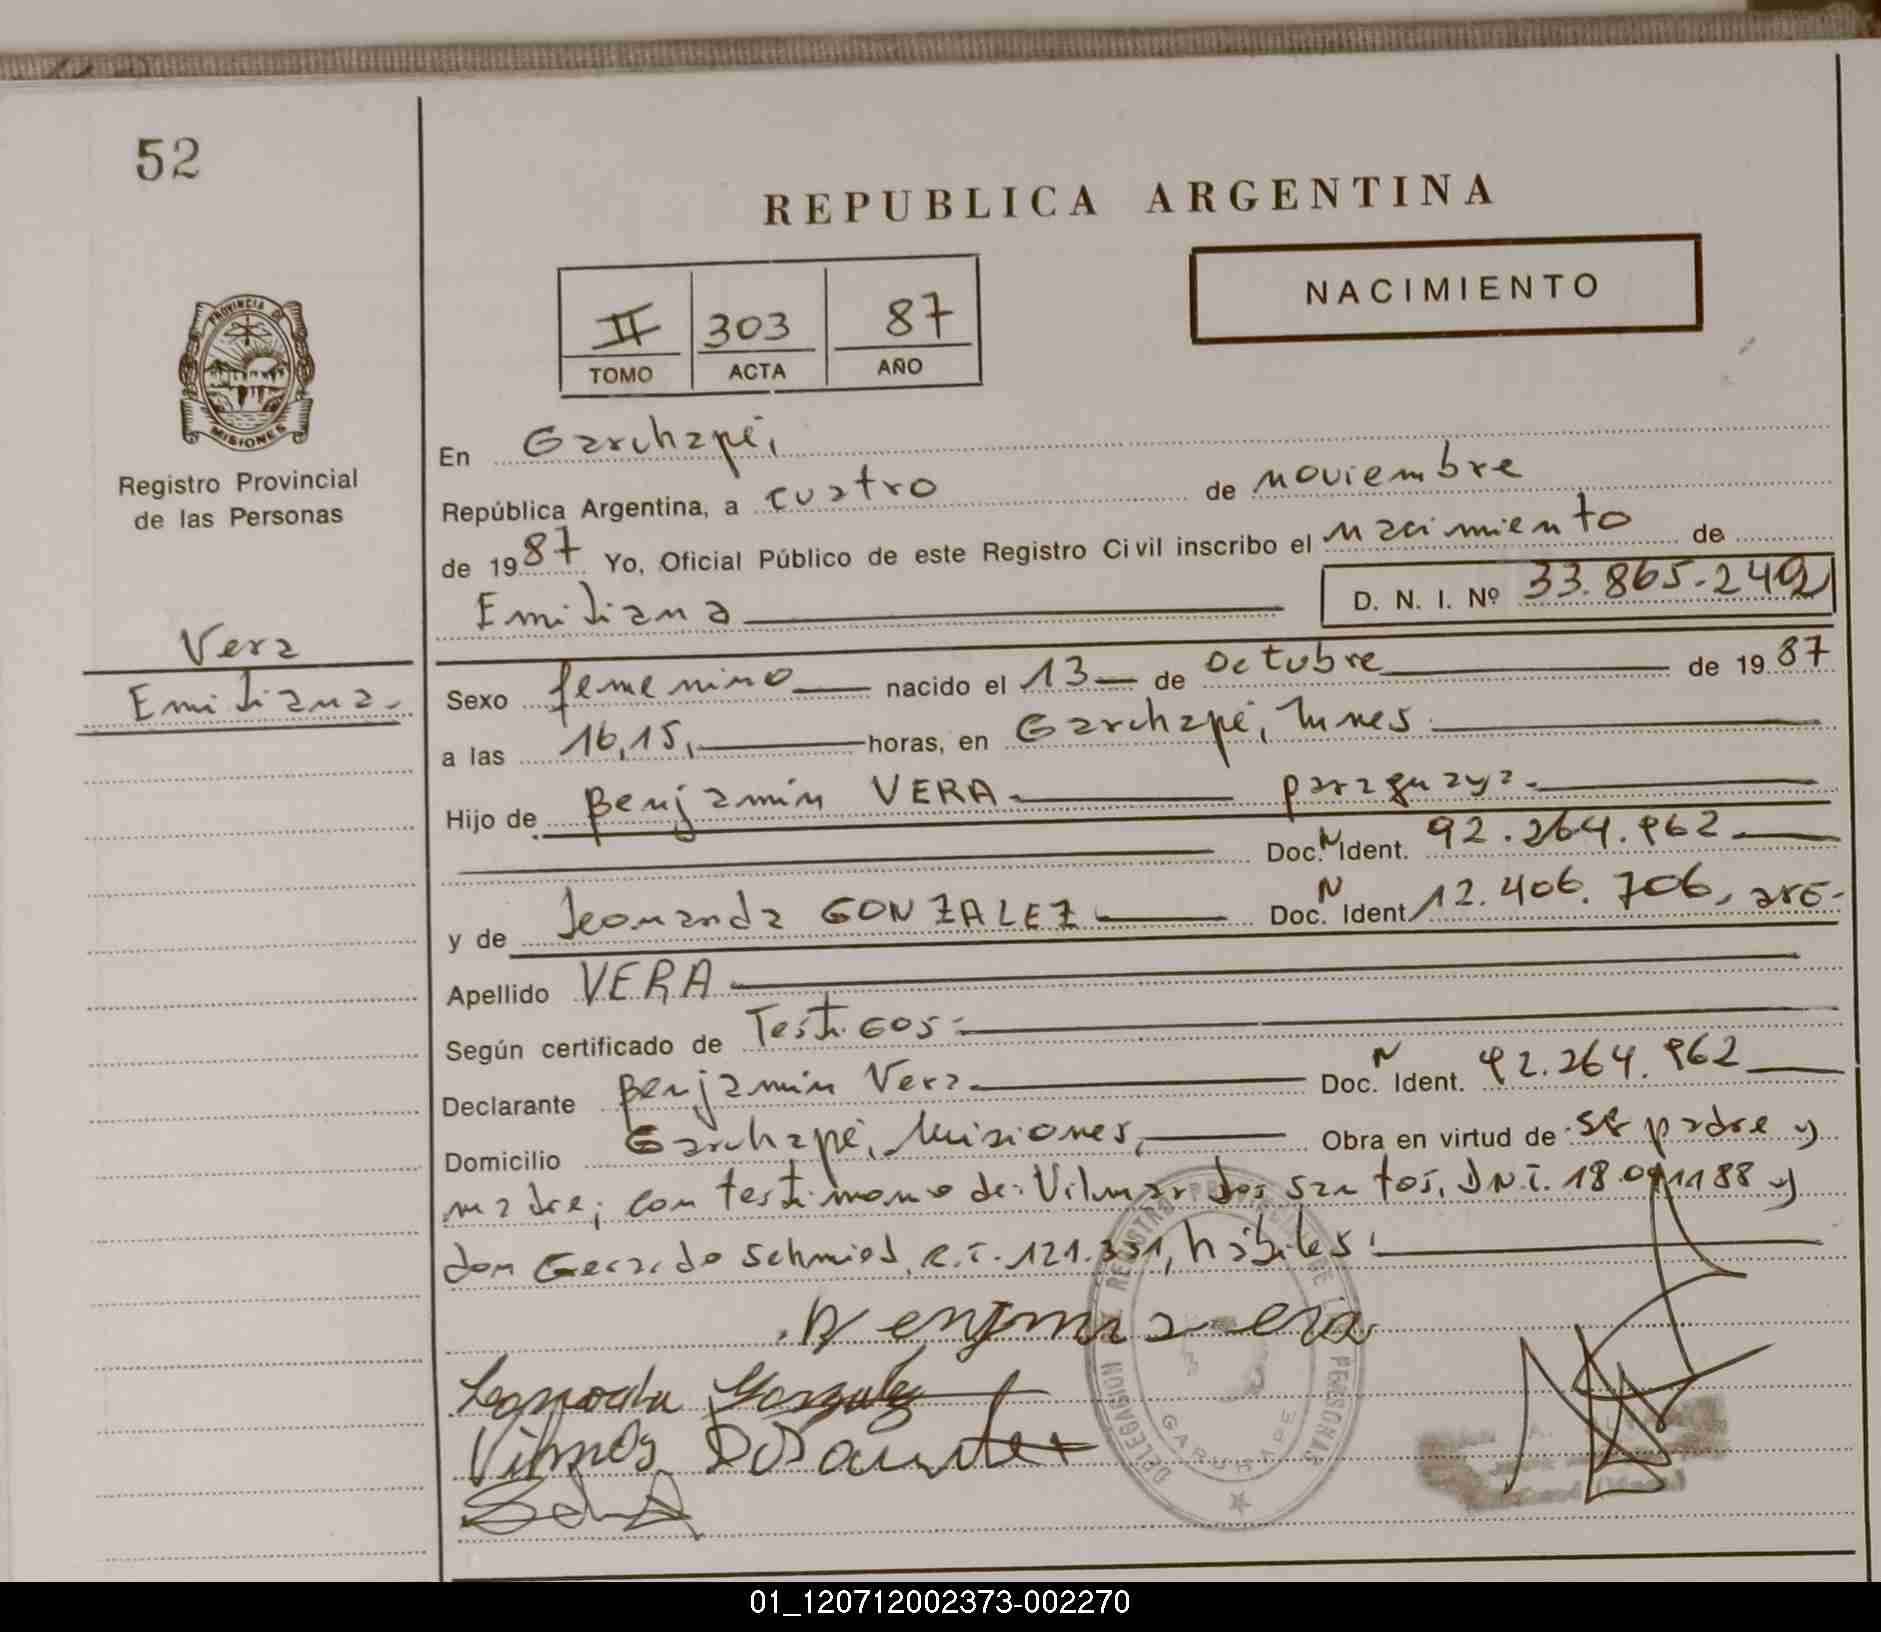 52
REPUBLICA ARGENTINA
NACIMIENTO
II 303 87
TOMO ACTA AÑO
PROVINCIA DE
MISIONES
Registro Provincial
de las Personas
Vera
Emiliana.-
En Garuhapé,
República Argentina, a cuatro de noviembre
de 1987 Yo, Oficial Público de este Registro Civil inscribo el nacimiento de
Emiliana D. N. I. Nº 33.865.249
Sexo femenino nacido el 13 de octubre de 1987
a las 16,15, horas, en Garuhapé, lunes
Hijo de Benjamín VERA paraguaya.
Doc. N Ident. 92.264.962
y de Leonarda GONZALEZ Doc. N Ident 12.406.706, arg-
Apellido VERA
Según certificado de Testigos:
Declarante Benjamín Vera Doc. N Ident. 92.264.962
Domicilio Garuhapé, Misiones, Obra en virtud de ser padre y
madre; con testimonio de: Vilmar dos santos, DNI. 18.091188 y
don Gerardo Schmied, C.I. 121.351, hábiles:
Leonarda Gonzalez
DELEGACION REGISTRO PROVINCIAL DE LAS PERSONAS
GARUHAPE
01_120712002373-002270